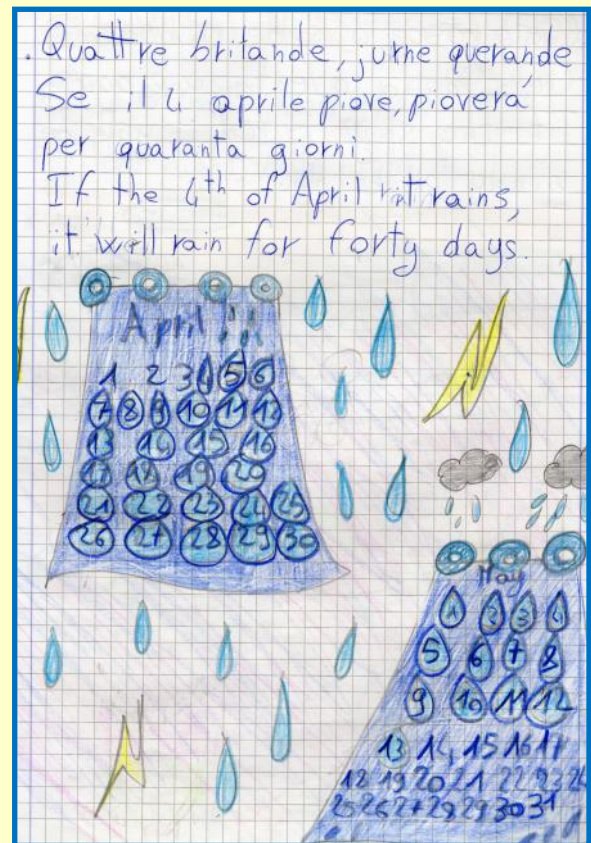 . Quattre britande, jurne querande
Se il 4 aprile piove, pioverà
per quaranta giorni.
If the 4th of April it rains,
it will rain for forty days.
April
1 2 3 4 5 6
7 8 9 10 11 12
13 14 15 16
17 18 19 20
21 22 23 24 25
26 27 28 29 30
May
1 2 3 4
5 6 7 8
9 10 11 12
13 14 15 16 17
18 19 20 21 22 23 24
25 26 27 28 29 30 31